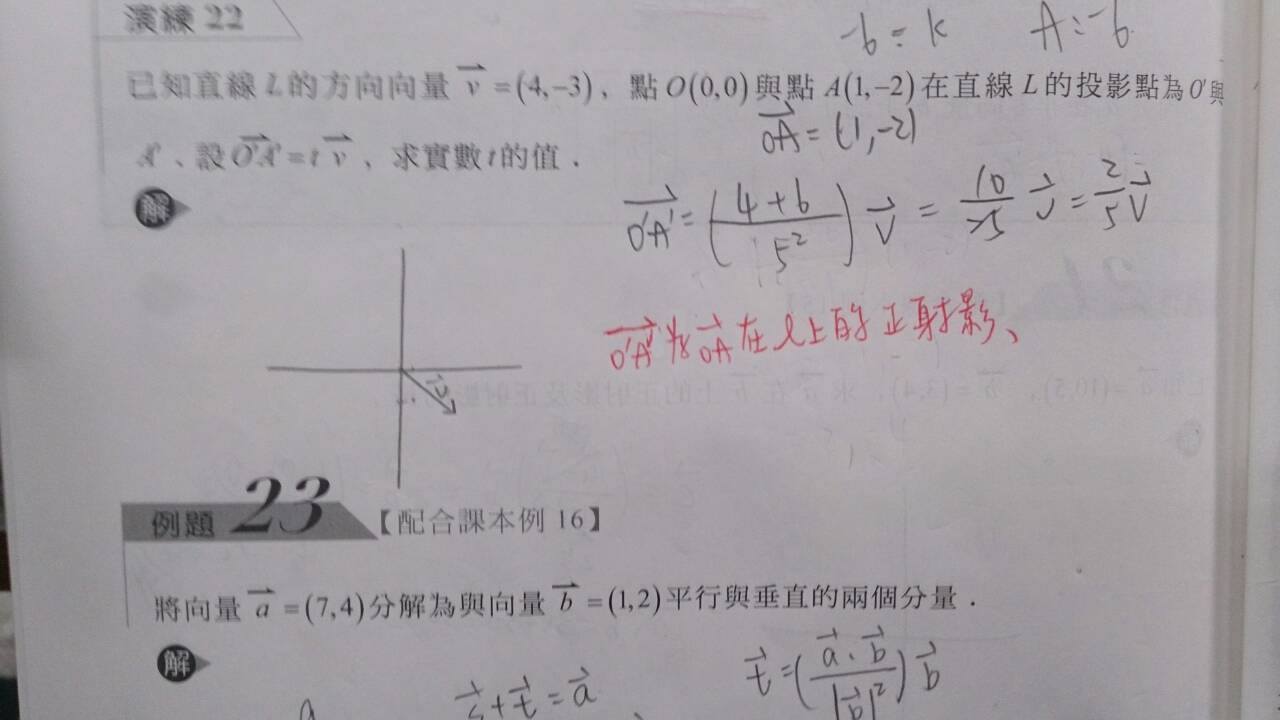 演練 22
-b = k A = -b
已知直線 L 的方向向量 v = (4,-3)，點 O(0,0) 與點 A(1,-2) 在直線 L 的投影點為 O' 與
OA = (1,-2)
A'、設 O'A' = t v，求實數 t 的值．
解
O'A' = (4+6 / 5²) v = 10/25 v = 2/5 v
O'A' 为 OA 在 l 上的正射影、
v
例題 23 【配合課本例 16】
將向量 a = (7,4) 分解為與向量 b = (1,2) 平行與垂直的兩個分量．
解
t = (a·b / |b|²) b
s + t = a